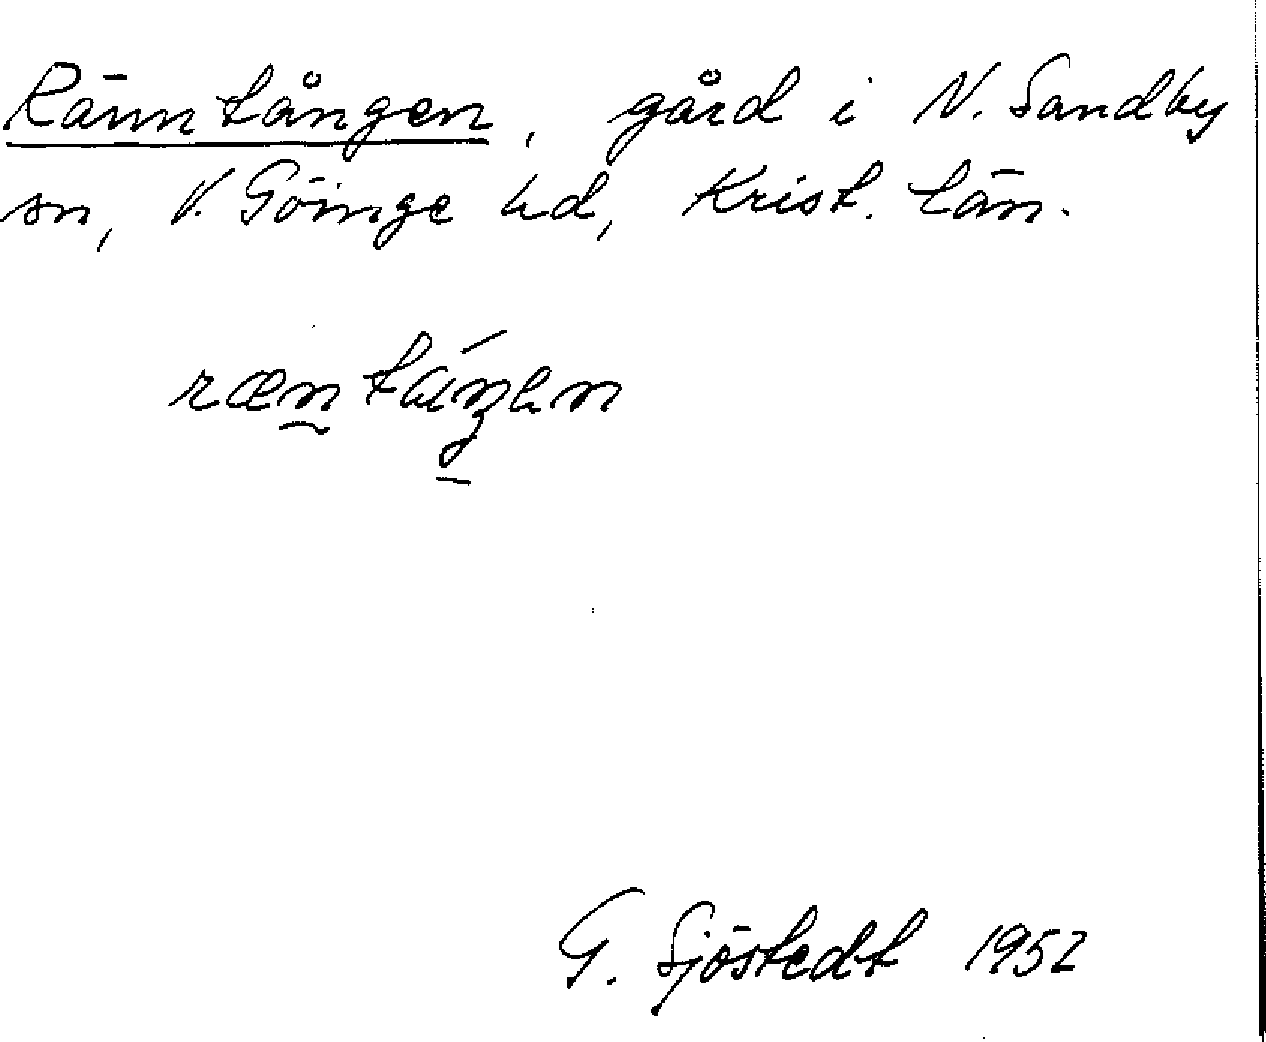 Ränntången, gård i N. Sandby
sn, V. Göinge hd, Krist. län.
G. Sjöstedt 1952